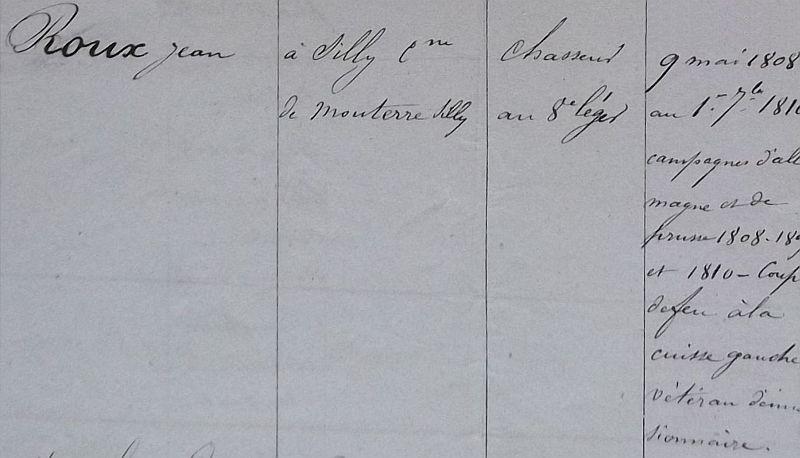 Roux jean
à Silly Cne
de Mouterre Silly
Chasseur
au 8e léger
9 mai 1808
au 1er 7bre 1810
campagnes d'alle
magne et de
prusse 1808-1809
et 1810 - Coup
de feu à la
cuisse gauche
vétéran démis
sionnaire.